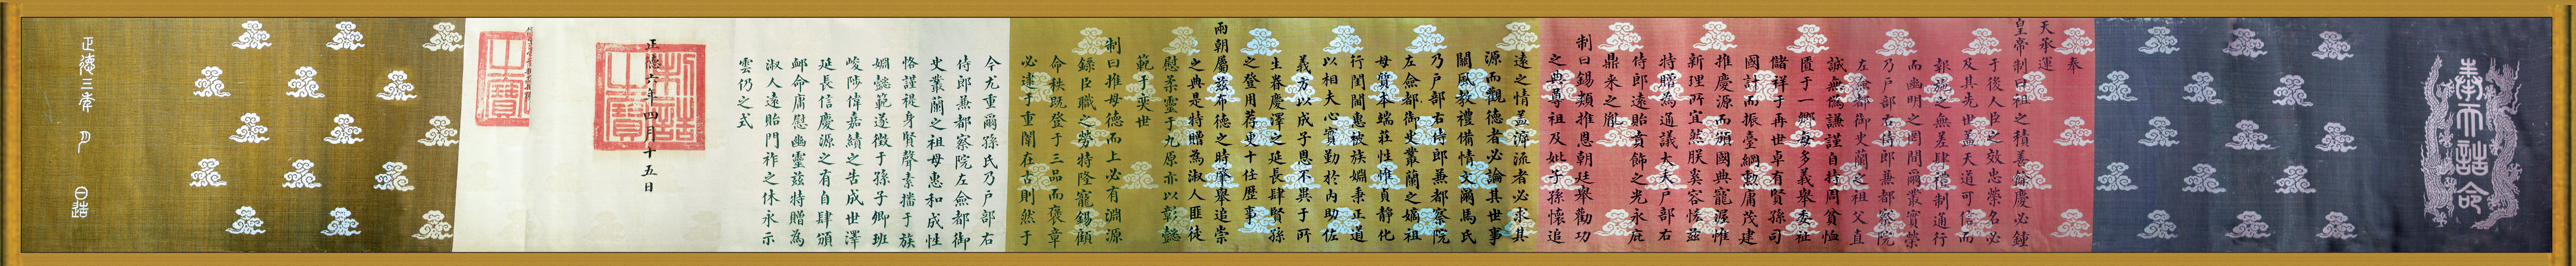 奉天誥命
奉
天承運
皇帝制曰祖之積善餘慶必鍾
于後人臣之效忠榮名必
及其先世蓋天道可信而
報施之無差肆伦制通行
而幽明之罔間爾叢實榮
乃戶部右侍郎兼都察院
左僉都御史蘭之祖父直
誠無偽謙謹自持周貧恤
匱于一鄉每多義舉委祉
儲祥于再世卓有賢孫司
國計而振臺綱勳庸茂建
推慶源而頒國典寵渥惟
新理所宜然朕奚容恡茲
特贈為通議大夫戶部右
侍郎遠貽賁飾之光永庇
鼎來之胤
制曰錫類推恩朝廷舉勸功
之典尊祖及妣子孫懷追
遠之情蓋源流者必求其
源而觀德者必論其世事
關風教禮備情文爾馬氏
乃戶部右侍郎兼都察院
左僉都御史叢蘭之嫡祖
母質本端莊性惟貞靜化
行閨閫惠被族姻秉正道
以相夫心實勤於內助佐
義方以成子恩不異于所
生眷慶澤之延長肆賢孫
之登用荐更十任歷事
兩朝屬茲布德之時肇舉追崇
之典是特贈為淑人匪徒
慰柔靈于九原亦以彰懿
範于奕世
制曰推母德而上必有淵源
錄臣職之勞特隆寵錫顧
命秩既登于三品而褒章
必逮于重闈在古則然于
今尤重爾孫氏乃戶部右
侍郎兼都察院左僉都御
史叢蘭之祖母惠和成性
恪謹禔身賢聲素播于族
姻懿範遂徵于孫子卿班
峻陟偉嘉績之告成世澤
延長信慶源之有自肆頒
卹命庸慰幽靈茲特贈為
淑人遠貽門祚之休永示
雲仍之式
正德六年四月十五日
制誥之寶
之寶
正德三年 月 日造